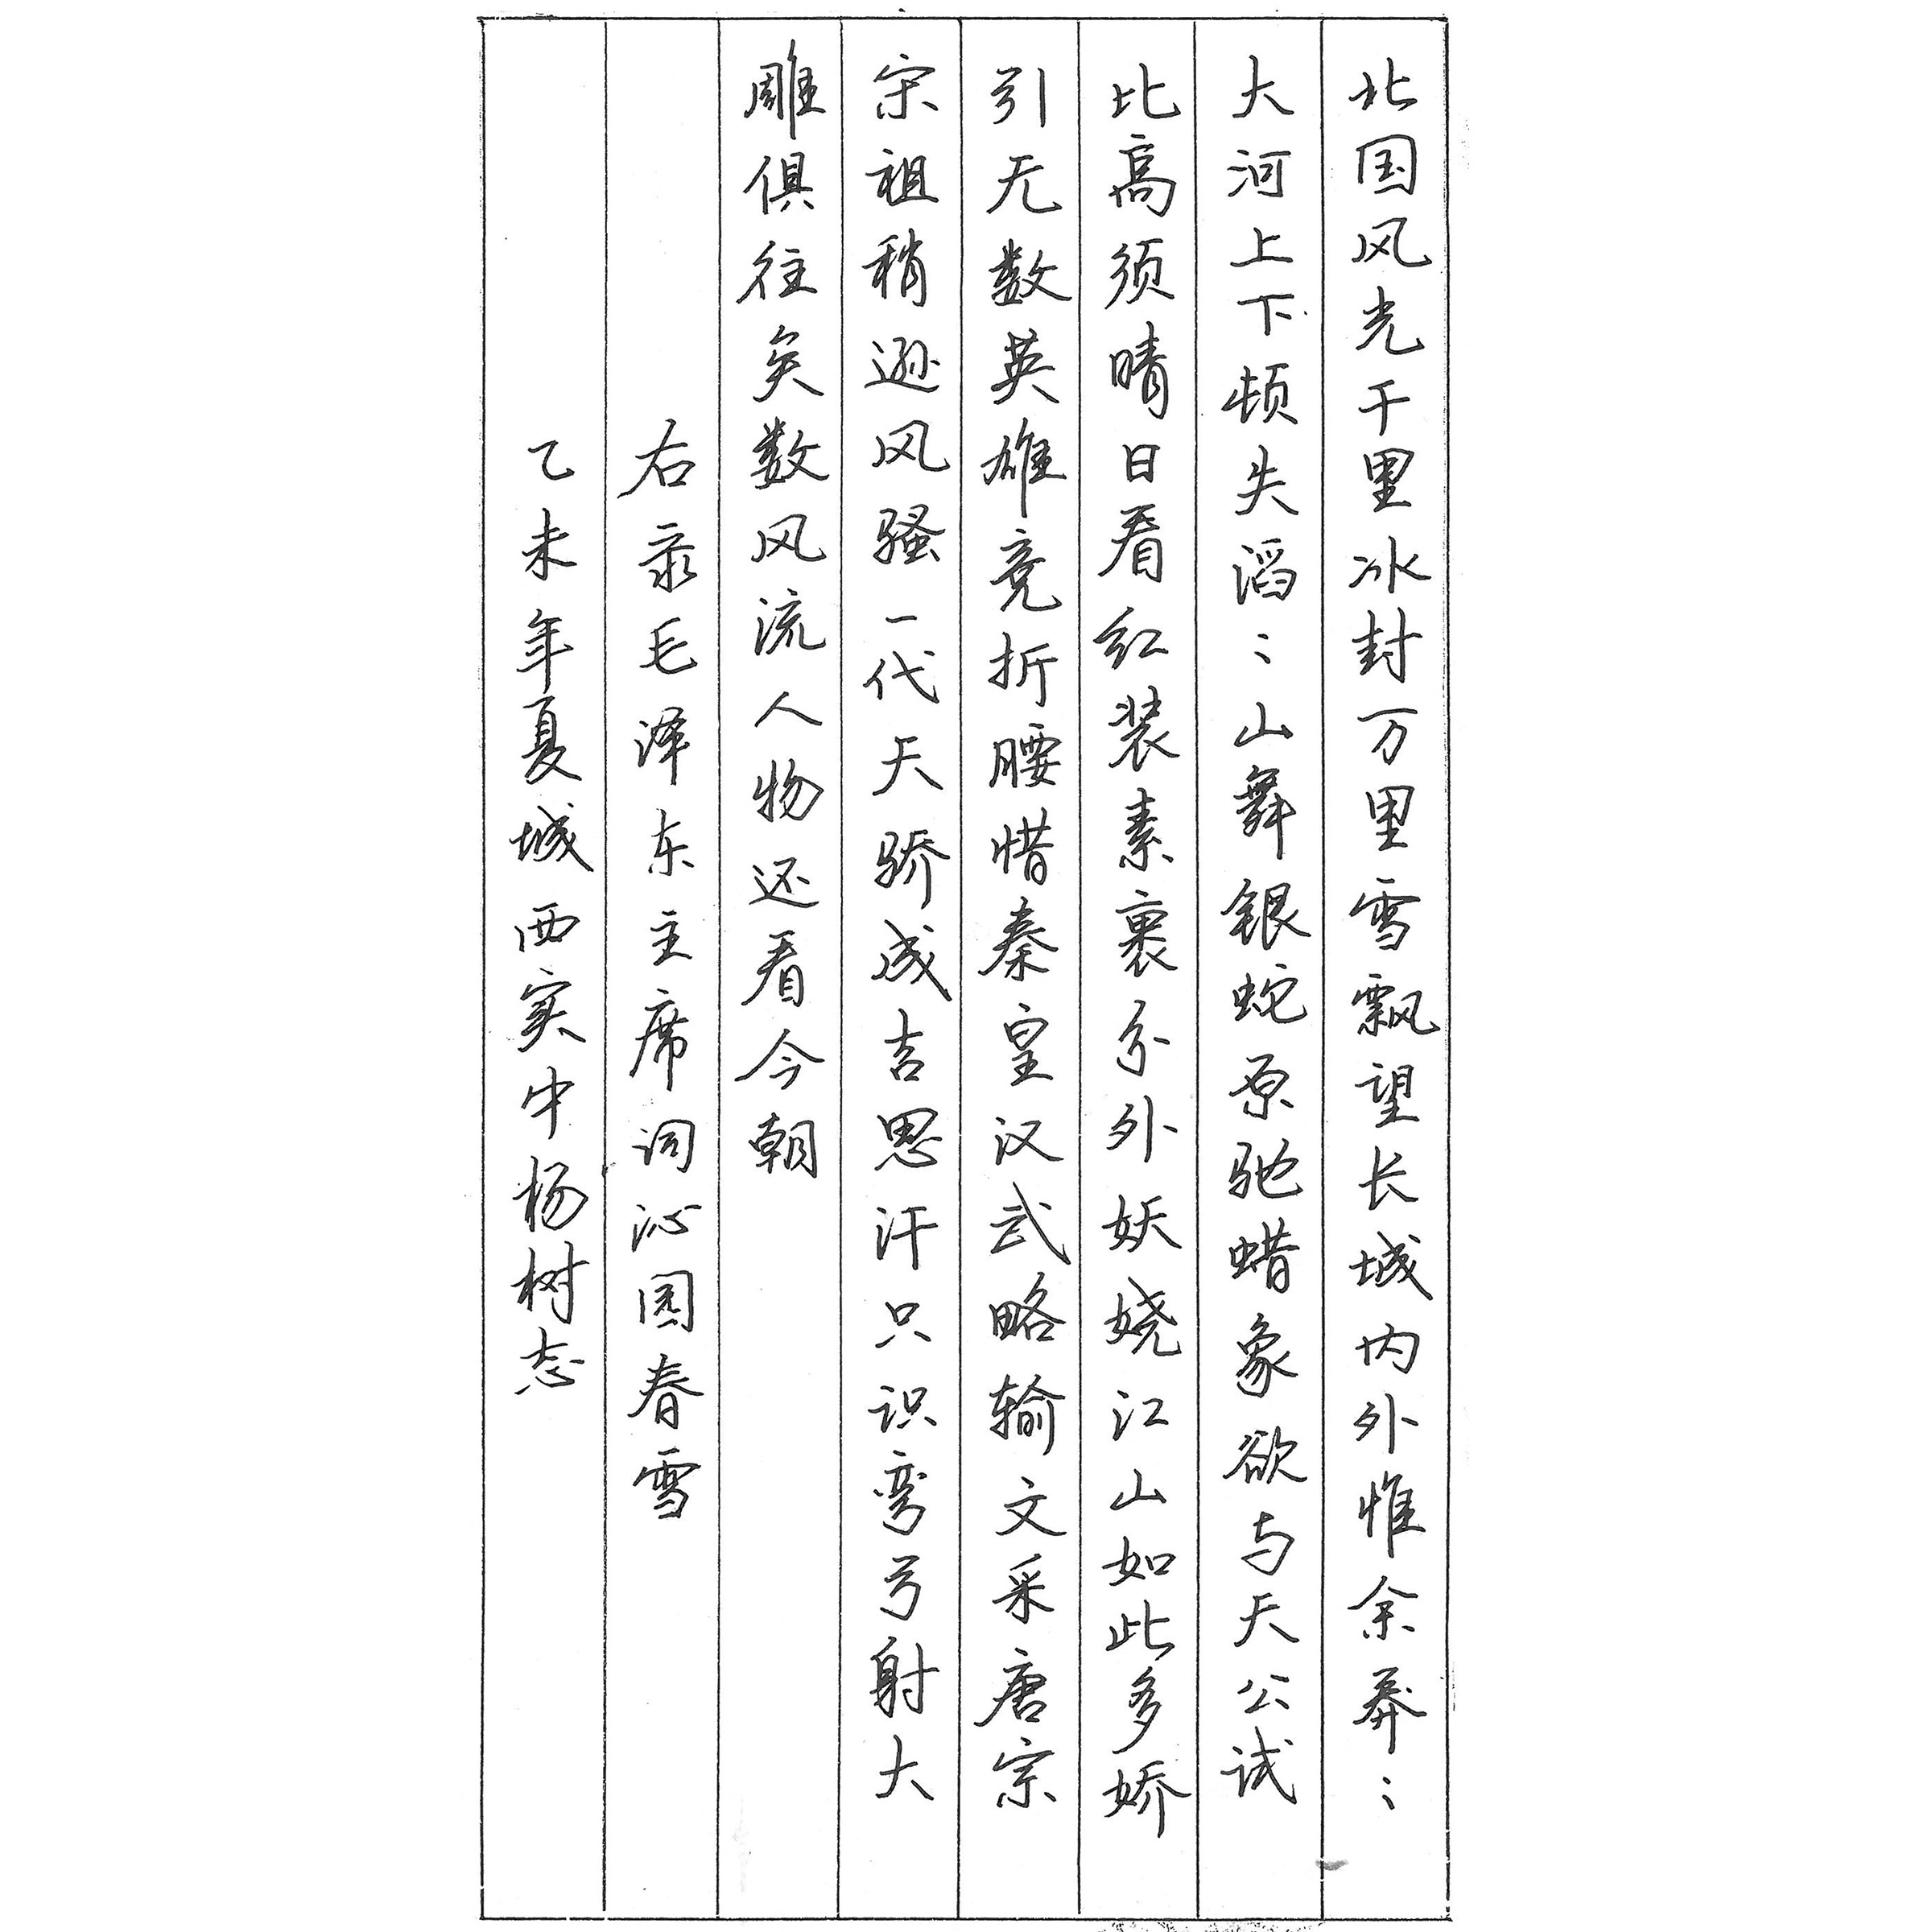 北国风光千里冰封万里雪飘望长城内外惟余莽〻
大河上下顿失滔〻山舞银蛇原驰蜡象欲与天公试
比高须晴日看红装素裹分外妖娆江山如此多娇
引无数英雄竞折腰惜秦皇汉武略输文采唐宗
宋祖稍逊风骚一代天骄成吉思汗只识弯弓射大
雕俱往矣数风流人物还看今朝
右录毛泽东主席词沁园春雪
乙未年夏城西实中杨树志